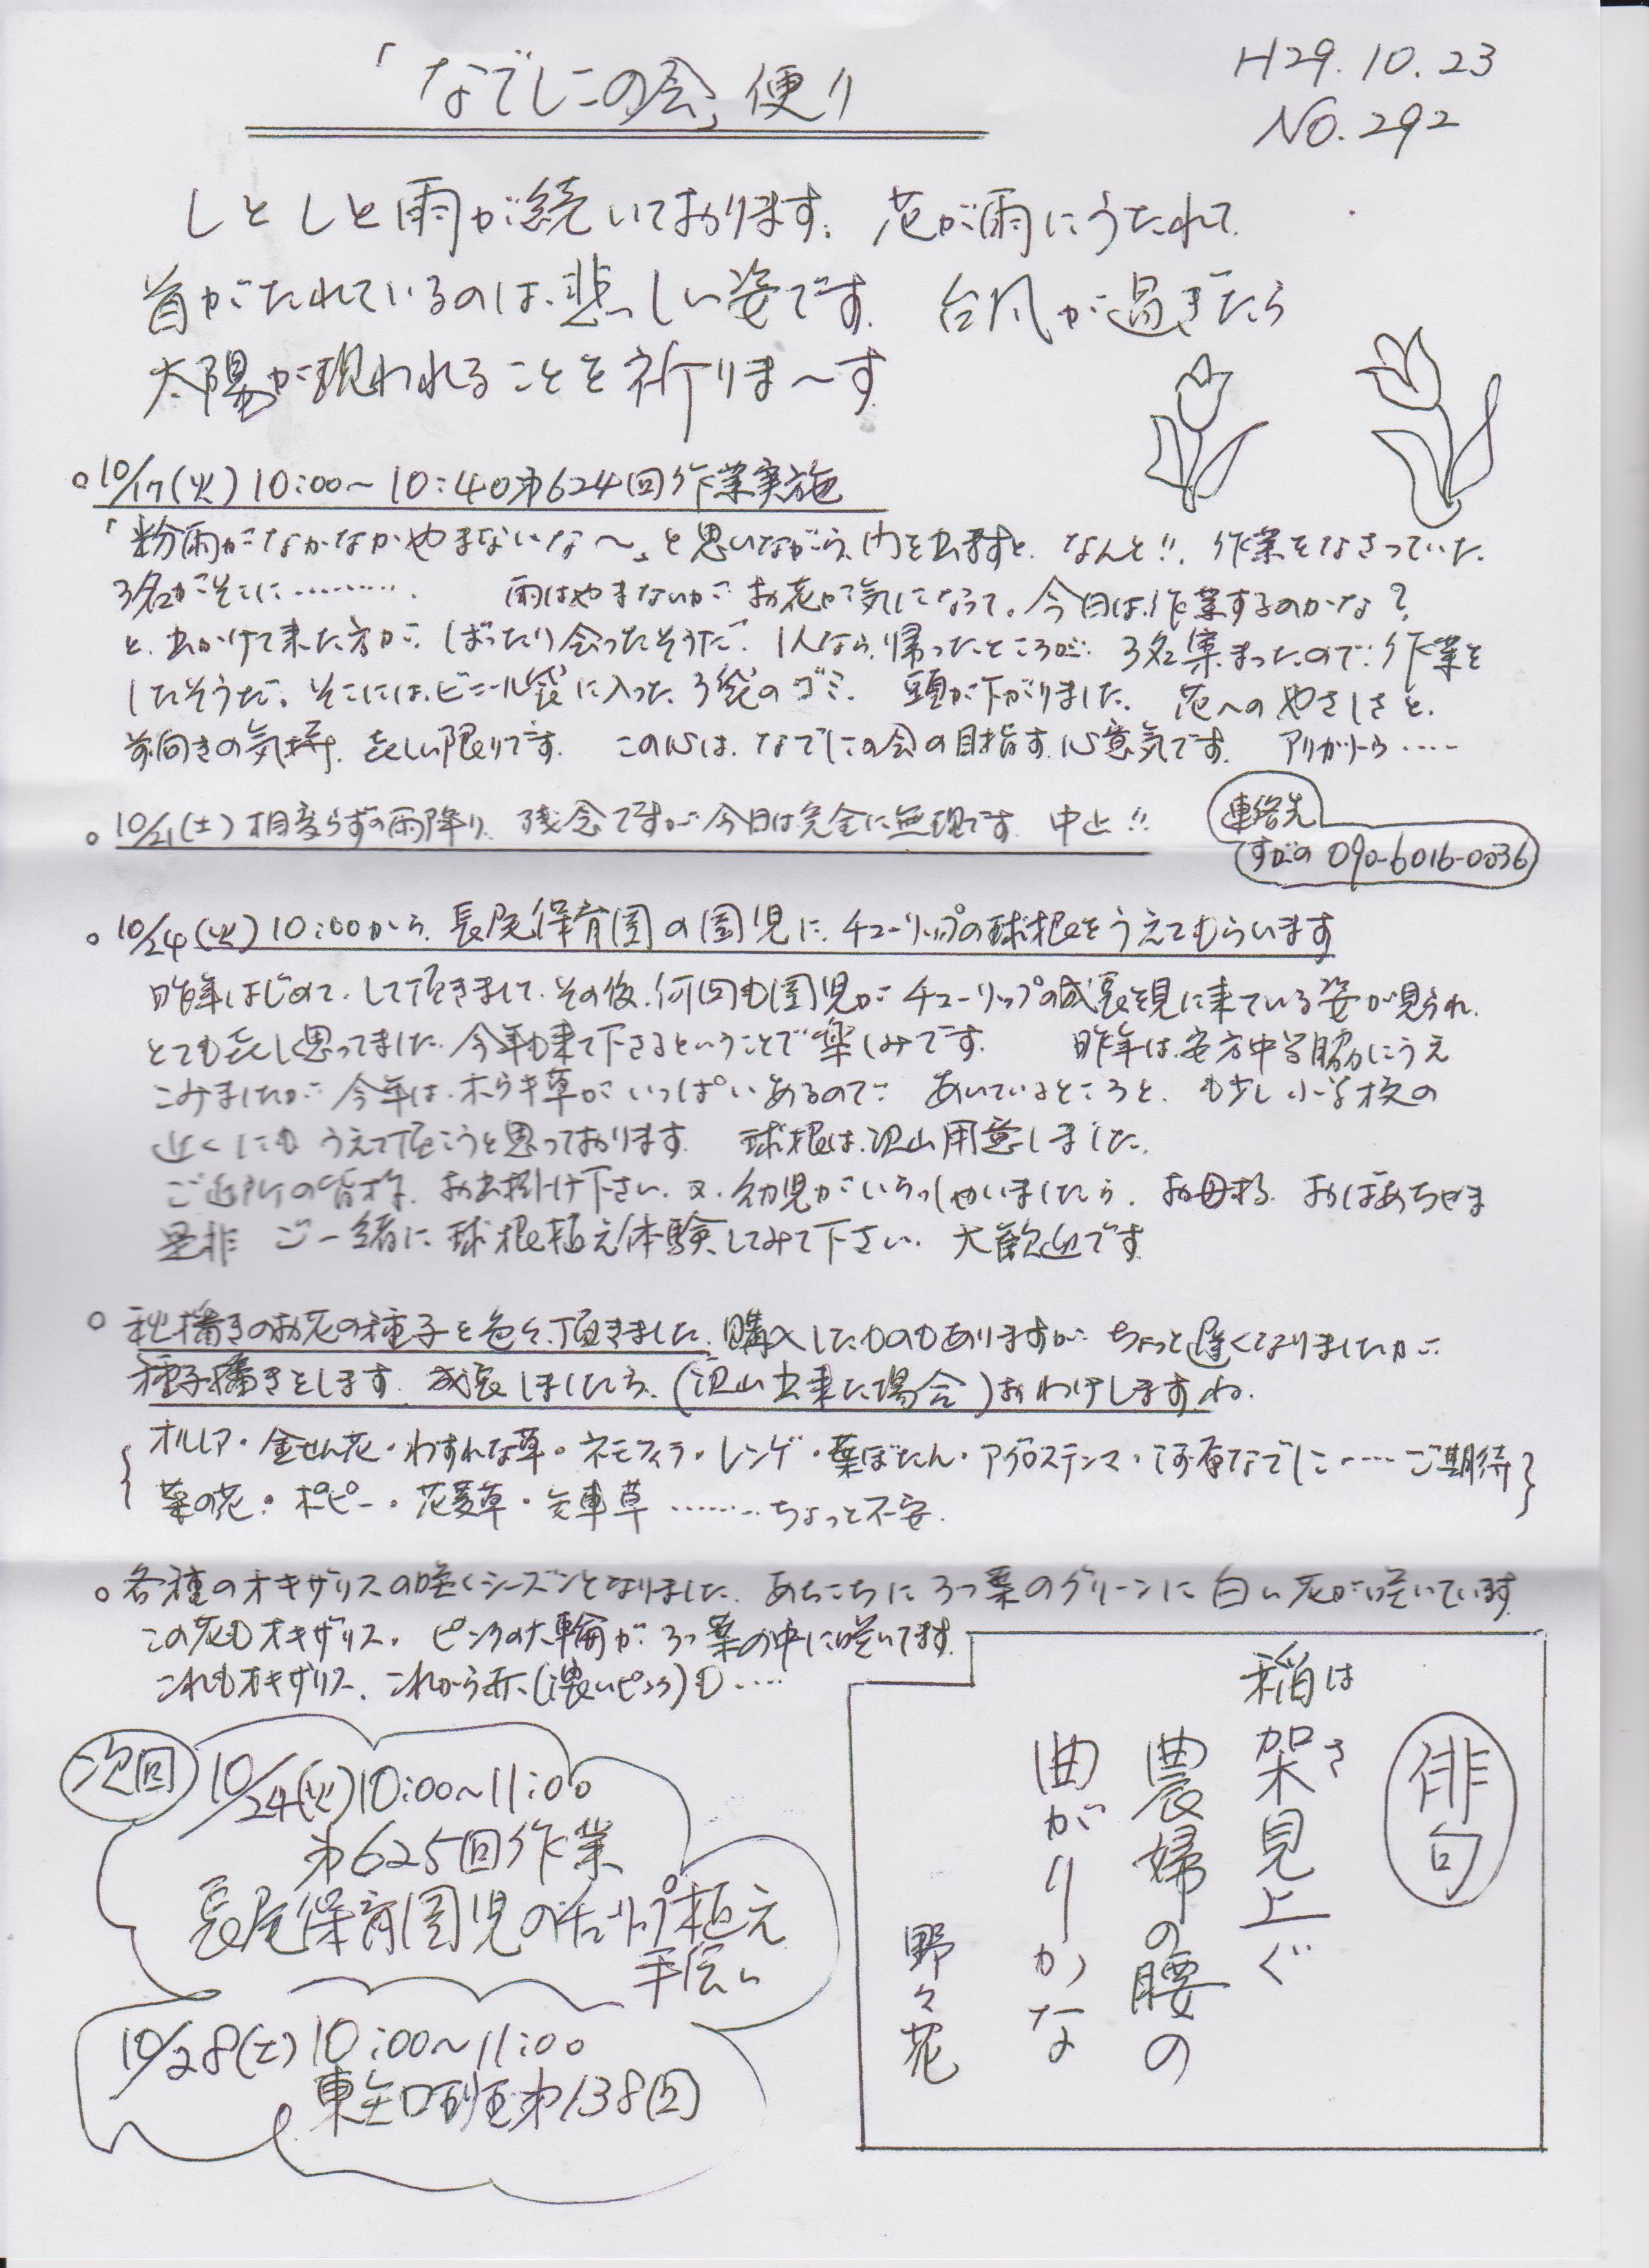 「なでしこの会」便り
H29.10.23
NO.292
しとしと雨が続いております。花が雨にうたれて
首がたれているのは、悲しい姿です。台風が過ぎたら
太陽が現われることを祈りま〜す
○10/17(火)10:00〜10:40第624回作業実施
「粉雨がなかなかやまないな〜」と思いながら、内を出ますと、なんと!!、作業をなさっていた
3名がそこに………. 雨はやまないが、お花が気になって。今日は、作業するのかな?
と、出かけて来た方が、ばったり会ったそうだ、1人なら、帰ったところが、3名集まったので、作業を
したそうだ。そこには、ビニール袋に入った3袋のゴミ、頭が下がりました。花へのやさしさと、
前向きの気持、喜しい限りです。この心は、なでしこの会の目指す、心意気です。アリガトウ‥‥
○10/21(土)相変らずの雨降り、残念ですが今日は完全に無理です。中止!!
連絡先
すがの 090-6016-0036
○10/24(火)10:00から、長尾保育園の園児に、チューリップの球根をうえてもらいます
昨年はじめて、して頂きまして、その後、何回も園児がチューリップの成長を見に来ている姿が見られ、
とても喜しく思ってました。今年も来て下さるということで楽しみです。昨年は、安方中学脇にうえ
こみましたが、今年は、ホウキ草がいっぱいあるので、あいているところと、も少し小学校の
近くにも うえて頂こうと思っております。球根は、沢山用意しました。
ご近所の皆様、お出掛け下さい。又、幼児がいらっしゃいましたら、お母様、おばあちゃま
是非 ご一緒に球根植え体験してみて下さい。大歓迎です
○秋播きのお花の種子を色々、頂きました。購入したものもありますが、ちょっと遅くなりましたが、
種子播きをします。成長しましたら、(沢山出来た場合)おわけしますね。
オルレア・金せん花・わすれな草・ネモフィラ・レンゲ・葉ぼたん・アグロステンマ・河原なでしこ‥‥ご期待
菜の花・ポピー・花菱草・矢車草………ちょっと不安.
○各種のオキザリスの咲くシーズンとなりました。あちこちに3つ葉のグリーンに白い花が咲いています
この花もオキザリス。ピンクの大輪が3つ葉の中に咲いてます。
これもオキザリス、これから赤(濃いピンク)も‥‥
次回 10/24(火)10:00〜11:00
第625回作業
長尾保育園児のチューリップ植え
手伝い
10/28(土)10:00〜11:00
東矢口班第138回
俳句
稲は架見上ぐ
さ
農婦の腰の
曲がりかな
野々花